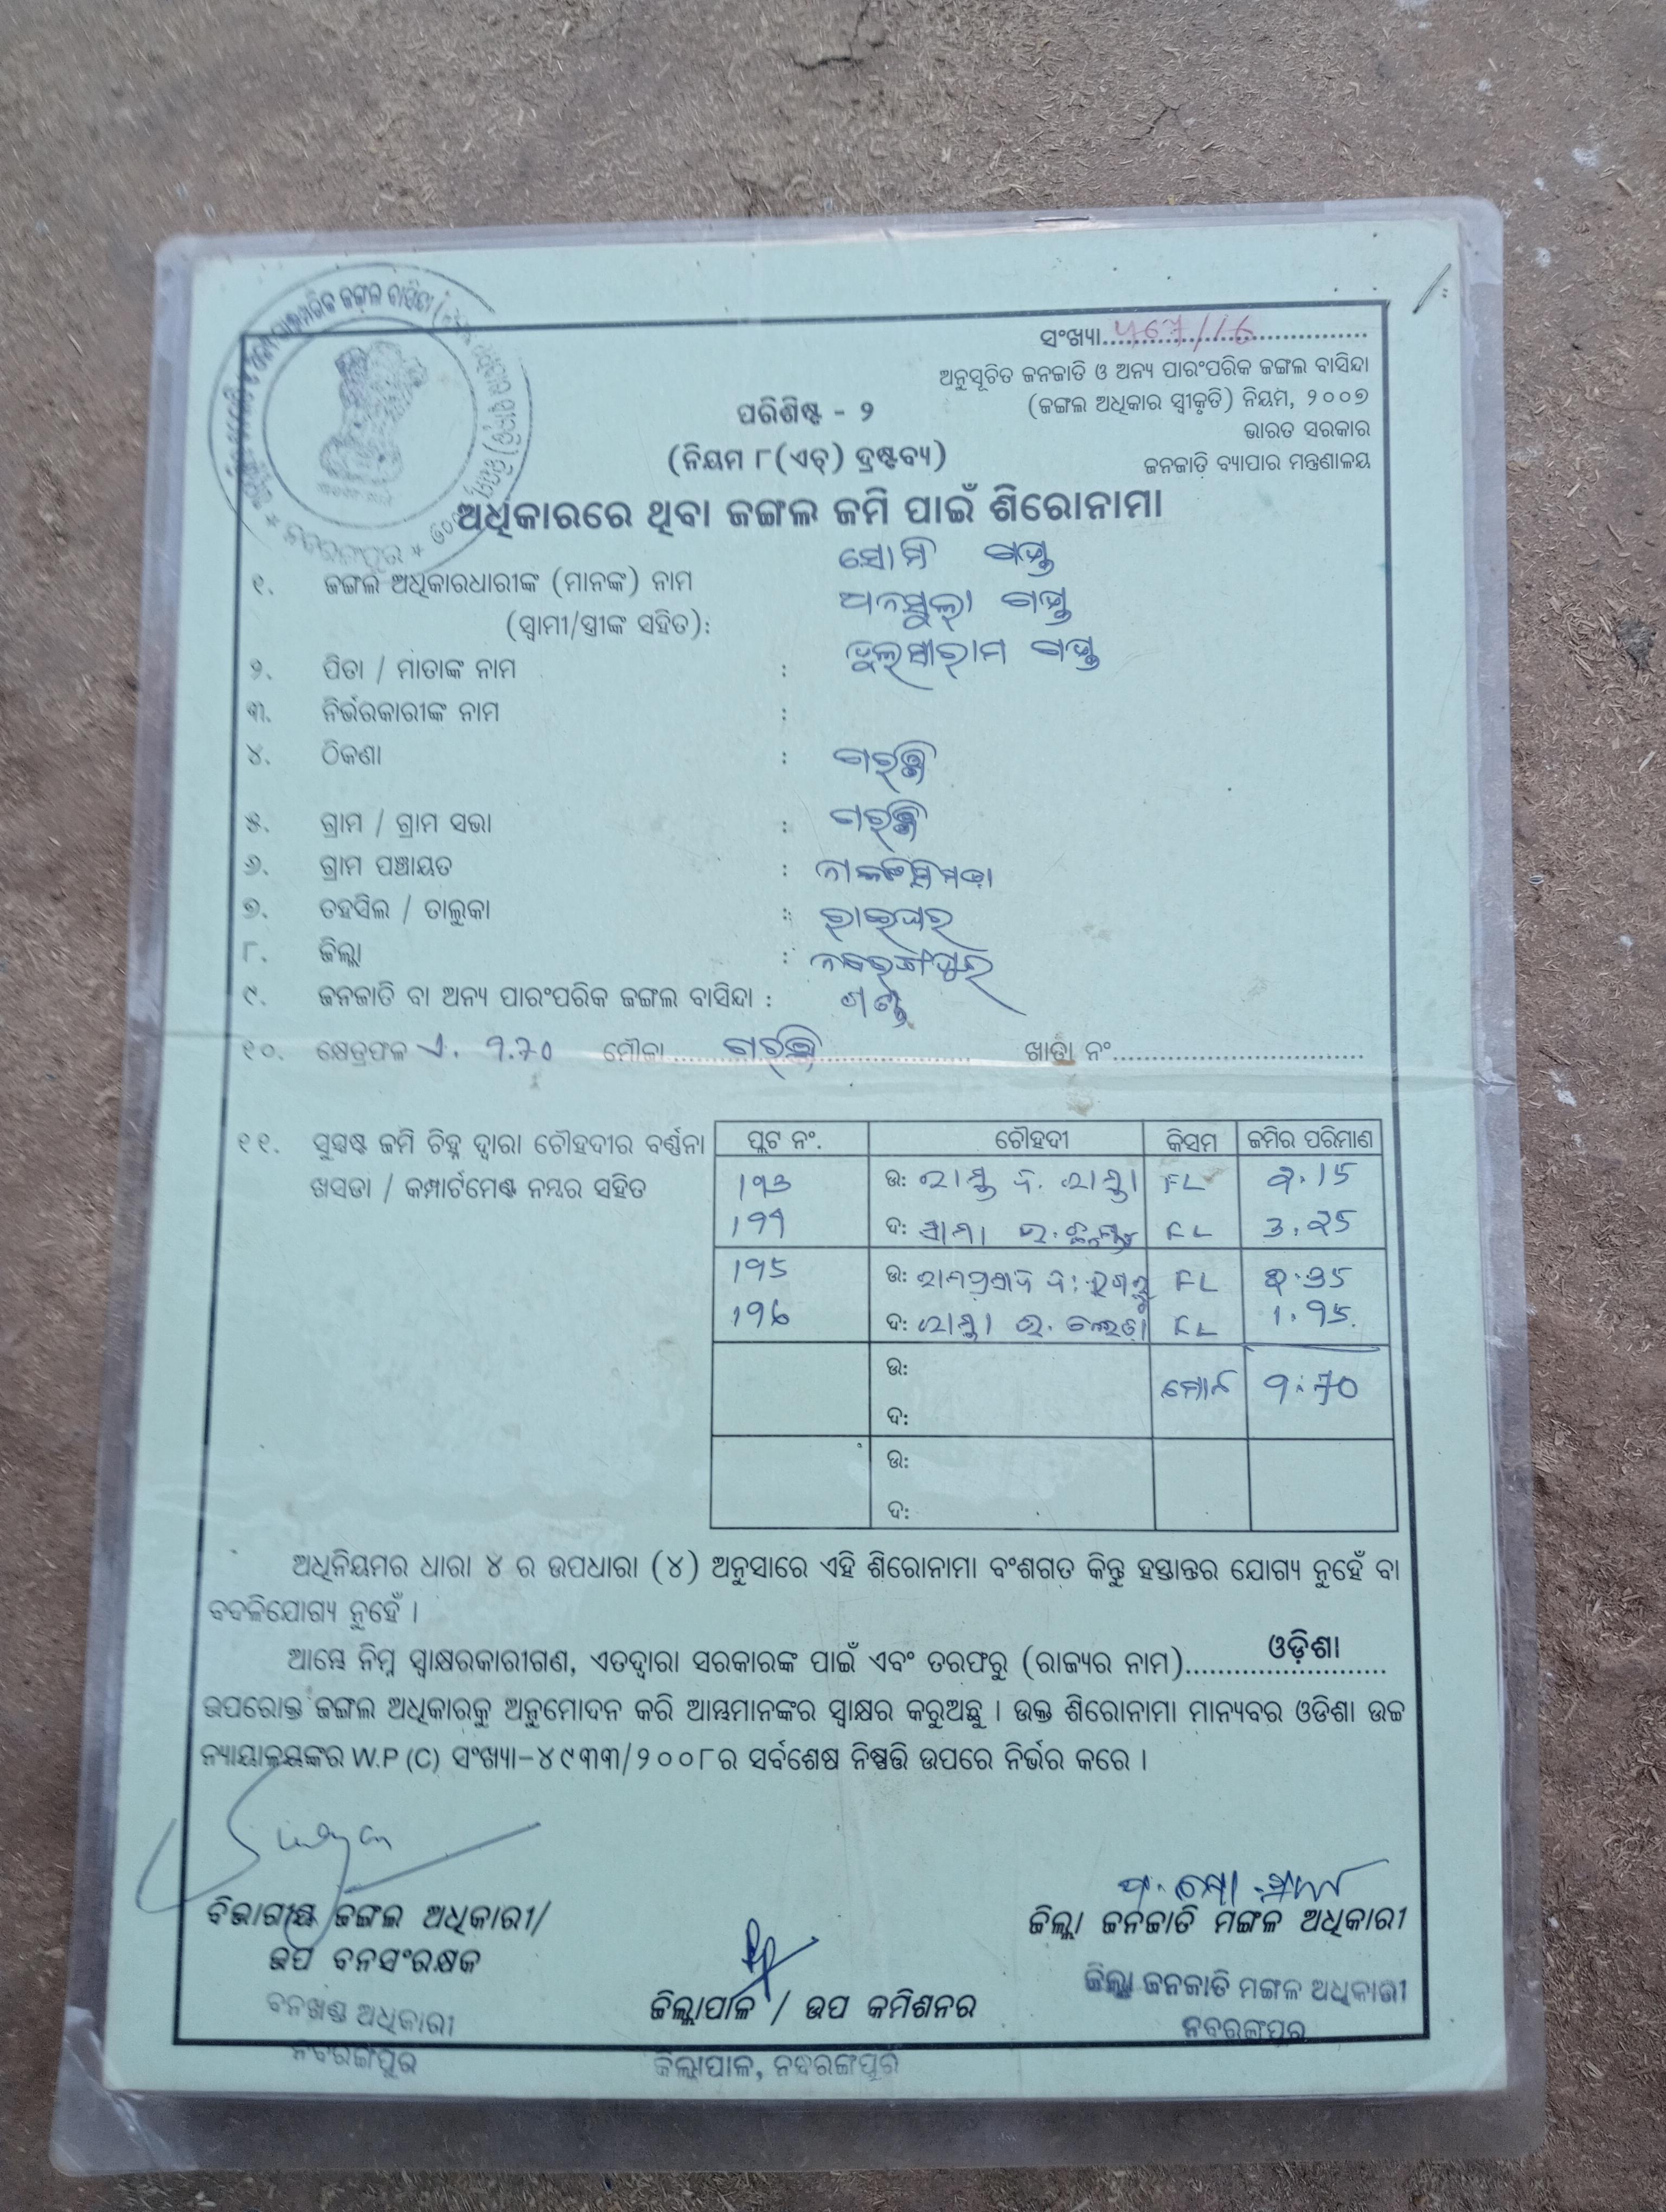 ସଂଖ୍ୟା
ଅନୁସୂଚିତ ଜନଜାତି ଓ ଅନ୍ୟ ପାରଂପରିକ ଜଙ୍ଗଲ ବାସିନ୍ଦା
(ଜଙ୍ଗଲ ଅଧିକାର ସ୍ୱୀକୃତି) ନିୟମ, ୨୦୦୭
ଭାରତ ସରକାର
ଜନଜାତି ବ୍ୟାପାର ମନ୍ତ୍ରଣାଳୟ
ପରିଶିଷ୍ଟ - ୨
(ନିୟମ ୮(ଏଚ୍) ଦ୍ରଷ୍ଟବ୍ୟ)
ଅଧିକାରରେ ଥିବା ଜଙ୍ଗଲ ଜମି ପାଇଁ ଶିରୋନାମା
୧. ଜଙ୍ଗଲ ଅଧିକାରଧାରୀଙ୍କ (ମାନଙ୍କ) ନାମ ସୋମି ଗଣ୍ଡ
(ସ୍ୱାମୀ/ସ୍ତ୍ରୀଙ୍କ ସହିତ): ଗଣ୍ଡ
୨. ପିତା / ମାତାଙ୍କ ନାମ : ତୁଲସୀରାମ ଗଣ୍ଡ
୩. ନିର୍ଭରକାରୀଙ୍କ ନାମ :
୪. ଠିକଣା :
୫. ଗ୍ରାମ / ଗ୍ରାମ ସଭା :
୬. ଗ୍ରାମ ପଞ୍ଚାୟତ :
୭. ତହସିଲ / ତାଲୁକା : ରାଇଘର
୮. ଜିଲ୍ଲା : ନବରଙ୍ଗପୁର
୯. ଜନଜାତି ବା ଅନ୍ୟ ପାରଂପରିକ ଜଙ୍ଗଲ ବାସିନ୍ଦା : ଗଣ୍ଡ
୧୦. କ୍ଷେତ୍ରଫଳ ଏ. 9.70 ମୌଜା ଖାତା ନଂ
୧୧. ସୁସ୍ପଷ୍ଟ ଜମି ଚିହ୍ନ ଦ୍ୱାରା ଚୌହଦୀର ବର୍ଣ୍ଣନା
ଖସଡା / କମ୍ପାର୍ଟମେଣ୍ଟ ନମ୍ବର ସହିତ
ପ୍ଲଟ ନଂ. ଚୌହଦୀ କିସମ ଜମିର ପରିମାଣ
193 ଉ: FL 2.15
194 ଦ: FL 3.25
195 ଉ: FL 2.35
196 ଦ: ରାସ୍ତା FL 1.95
ଉ: ମୋଟ 9.70
ଦ:
ଉ:
ଦ:
ଅଧିନିୟମର ଧାରା ୪ ର ଉପଧାରା (୪) ଅନୁସାରେ ଏହି ଶିରୋନାମା ବଂଶଗତ କିନ୍ତୁ ହସ୍ତାନ୍ତର ଯୋଗ୍ୟ ନୁହେଁ ବା
ବଦଳିଯୋଗ୍ୟ ନୁହେଁ ।
ଆମ୍ଭେ ନିମ୍ନ ସ୍ୱାକ୍ଷରକାରୀଗଣ, ଏତଦ୍ୱାରା ସରକାରଙ୍କ ପାଇଁ ଏବଂ ତରଫରୁ (ରାଜ୍ୟର ନାମ) ଓଡ଼ିଶା
ଉପରୋକ୍ତ ଜଙ୍ଗଲ ଅଧିକାରକୁ ଅନୁମୋଦନ କରି ଆମ୍ଭମାନଙ୍କର ସ୍ୱାକ୍ଷର କରୁଅଛୁ । ଉକ୍ତ ଶିରୋନାମା ମାନ୍ୟବର ଓଡିଶା ଉଚ୍ଚ
ନ୍ୟାୟାଳୟଙ୍କର W.P (C) ସଂଖ୍ୟା-୪୯୩୩/୨୦୦୮ର ସର୍ବଶେଷ ନିଷ୍ପତ୍ତି ଉପରେ ନିର୍ଭର କରେ ।
ବିଭାଗୀୟ ଜଙ୍ଗଲ ଅଧିକାରୀ/
ଉପ ବନସଂରକ୍ଷକ
ବନଖଣ୍ଡ ଅଧିକାରୀ
ନବରଙ୍ଗପୁର
ଜିଲ୍ଲାପାଳ / ଉପ କମିଶନର
ଜିଲ୍ଲାପାଳ, ନବରଙ୍ଗପୁର
ଜିଲ୍ଲା ଜନଜାତି ମଙ୍ଗଳ ଅଧିକାରୀ
ଜିଲ୍ଲା ଜନଜାତି ମଙ୍ଗଳ ଅଧିକାରୀ
ନବରଙ୍ଗପୁର